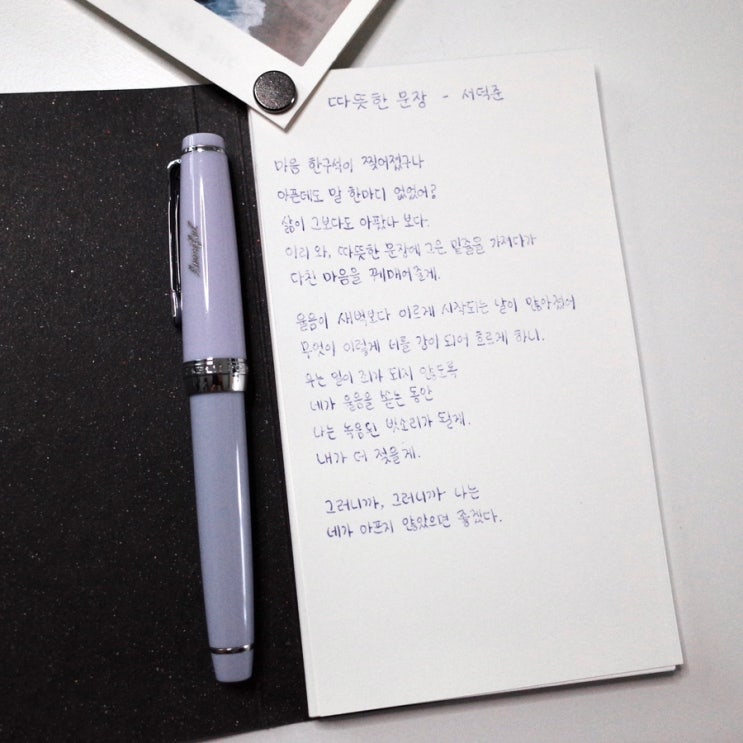 따뜻한 문장 - 서덕준
마음 한구석이 찢어졌구나
아픈데도 말 한마디 없었어?
삶이 그보다도 아팠나 보다.
이리 와, 따뜻한 문장에 그은 밑줄을 가져다가
다친 마음을 꿰매어줄게.
울음이 새벽보다 이르게 시작되는 날이 많아졌어
무엇이 이렇게 너를 강이 되어 흐르게 하니.
우는 일이 죄가 되지 않도록
네가 울음을 쏟는 동안
나는 녹음된 빗소리가 될게.
내가 더 젖을게.
그러니까, 그러니까 나는
네가 아프지 않았으면 좋겠다.